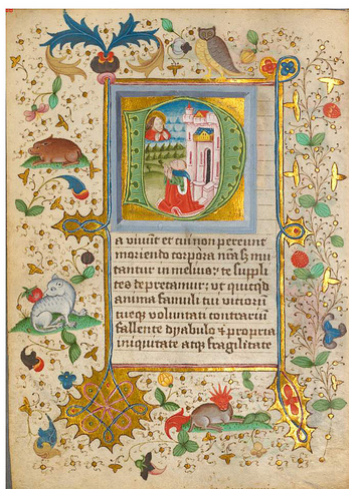 D
a viuūt et cui non pereunt
moriendo corpora nr̄a s̄ mu
tantur in melius: te suppli
ces depretamur: ut quicqd
anima famuli tui viciorū
tueqꝫ voluntati contrariū
fallente dyabulo ⁊ propria
iniquitate atqꝫ fragilitate